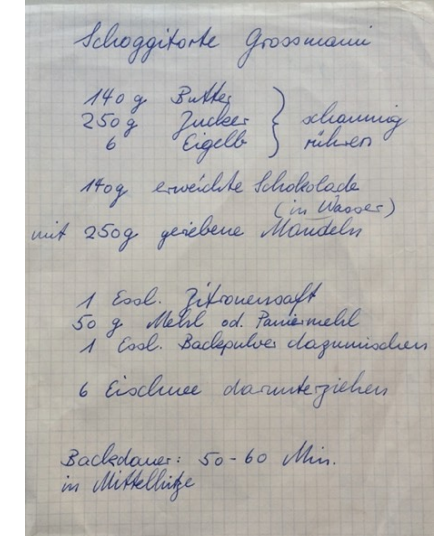 Schoggitorte Grossmami
140 g Butter
250 g Zucker
6 Eigelb
schaumig
rühren
140g erweichte Schokolade
(in Wasser)
mit 250g geriebene Mandeln
1 Essl. Zitronensaft
50 g Mehl od. Paniermehl
1 Essl. Backpulver dazumischen
6 Eischnee darunterziehen
Backdauer: 50-60 Min.
in Mittelhitze